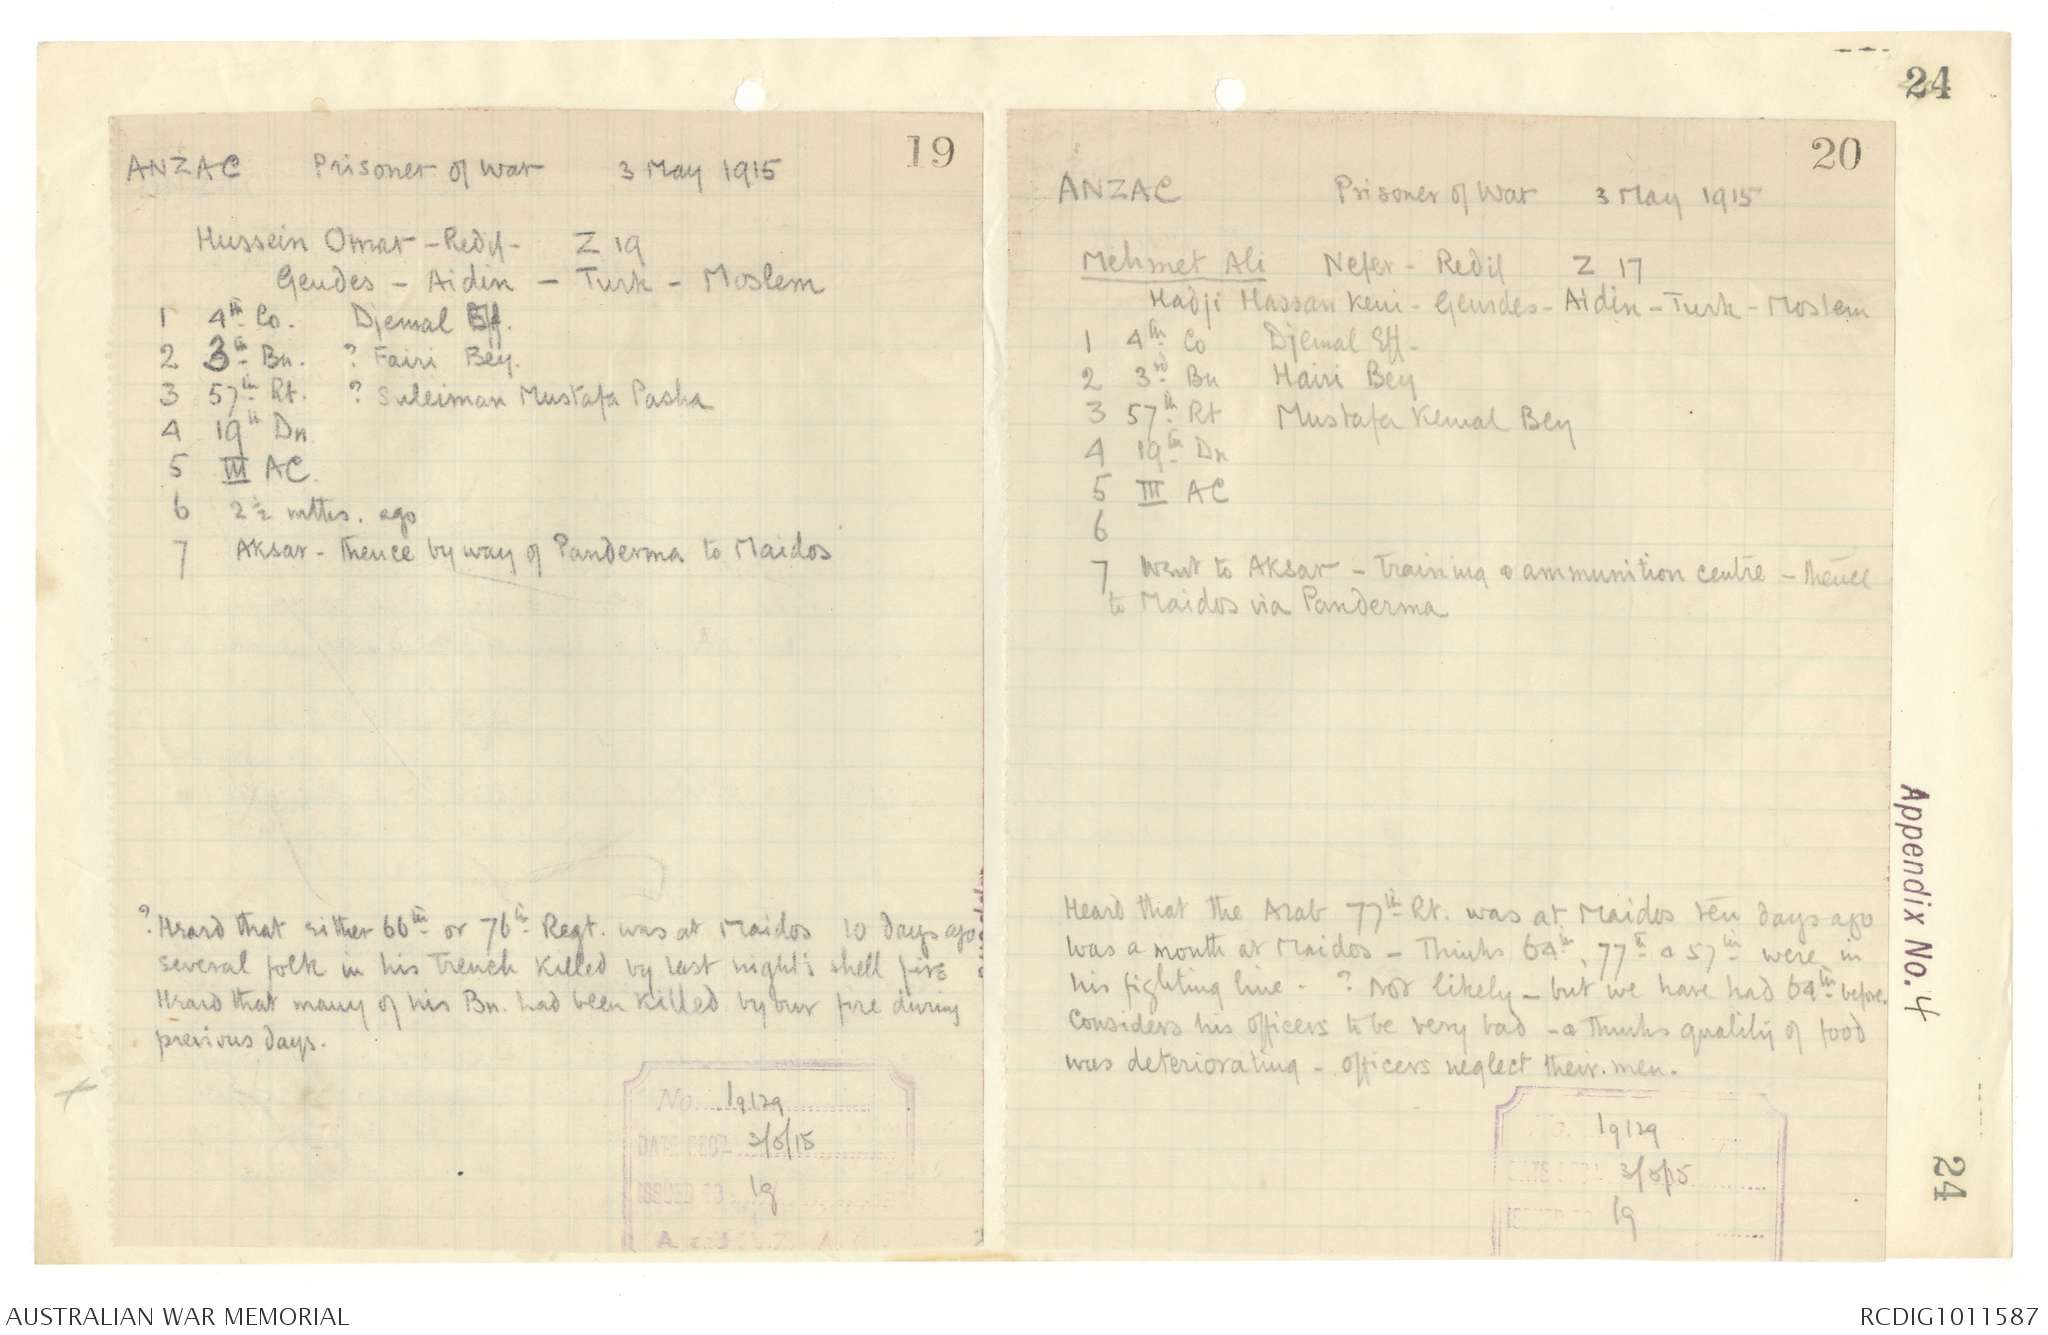 24
19
ANZAC Prisoner of War 3 May 1915
Hussein Omar - Redif - Z 19
Geudes - Aidin - Turk - Moslem
1 4th Co. Djemal Eff.
2 3th Bn. ? Fairi Bey.
3 57th Rt. ? Suleiman Mustafa Pasha
4 19th Dn
5 III AC.
6 2 1/2 mths. ago
7 Aksar - thence by way of Panderma to Maidos
? Heard that either 66th or 76th Regt. was at Maidos 10 days ago
several folk in his trench killed by last night's shell fire
Heard that many of his Bn. had been killed by our fire during
previous days.
No. Ig129
3/5/15
ISSUED TO Ig
20
ANZAC Prisoner of War 3 May 1915
Mehmet Ali Nefer - Redif Z 17
Hadji Hassan Keui - Geurdes - Aidin - Turk - Moslem
1 4th Co Djemal Eff -
2 3rd Bn Hairi Bey
3 57th Rt Mustafa Kemal Bey
4 19th Dn
5 III AC
6
7 Went to Aksar - Training & ammunition centre - thence
to Maidos via Panderma
Heard that the Arab 77th Rt. was at Maidos ten days ago
was a month at Maidos - Thinks 64th, 77th & 57th were in
his fighting line - ? Not likely - but we have had 64th before.
Considers his officers to be very bad - & thinks quality of food
was deteriorating - officers neglect their men.
Ig129
3/5/15
Ig
Appendix No. 4
24
AUSTRALIAN WAR MEMORIAL
RCDIG1011587